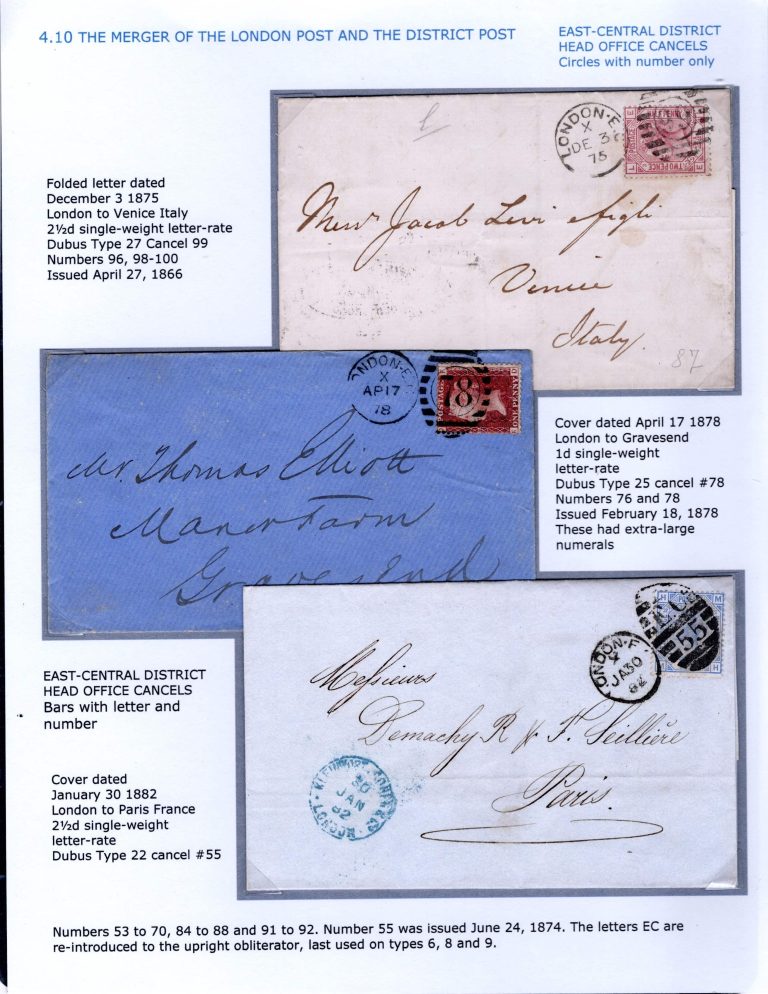 4.10 THE MERGER OF THE LONDON POST AND THE DISTRICT POST
EAST-CENTRAL DISTRICT
HEAD OFFICE CANCELS
Circles with number only
Folded letter dated
December 3 1875
London to Venice Italy
2½d single-weight letter-rate
Dubus Type 27 Cancel 99
Numbers 96, 98-100
Issued April 27, 1866
LONDON·E
X
DE 3
75
Jacob Levi & figli
Venice
Italy.
87
LONDON-E
X
AP17
78
78
POSTAGE
ONE PENNY
Mr. Thomas Elliott
Manor Farm
Gravesend
Cover dated April 17 1878
London to Gravesend
1d single-weight
letter-rate
Dubus Type 25 cancel #78
Numbers 76 and 78
Issued February 18, 1878
These had extra-large
numerals
EAST-CENTRAL DISTRICT
HEAD OFFICE CANCELS
Bars with letter and
number
LONDON·E
JA30
82
EC
55
H M
Messieurs
Demachy R & F. Seillière
Paris.
30
JAN
82
LONDON
Cover dated
January 30 1882
London to Paris France
2½d single-weight
letter-rate
Dubus Type 22 cancel #55
Numbers 53 to 70, 84 to 88 and 91 to 92. Number 55 was issued June 24, 1874. The letters EC are
re-introduced to the upright obliterator, last used on types 6, 8 and 9.